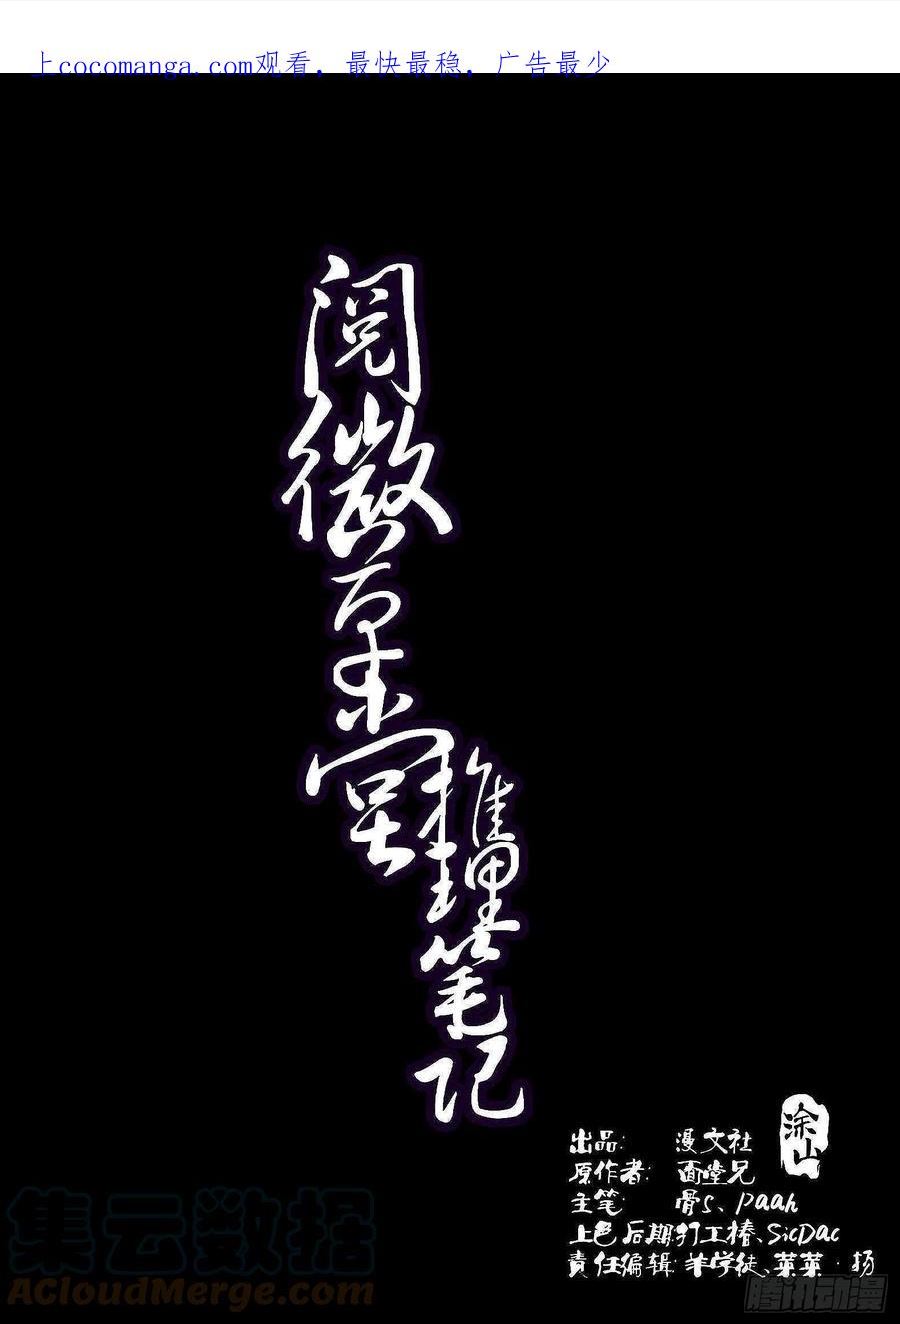 上cocomanga.com观看，最快最稳，广告最少
阅微草堂推理笔记
涂山
出品: 漫文社
原作者: 面堂兄
主笔: 骨S、paah
上色后期打工椿、SicDac
責任编辑:羊学徒、菜菜·扬
集云数据
ACloudMerge.com
腾讯动漫